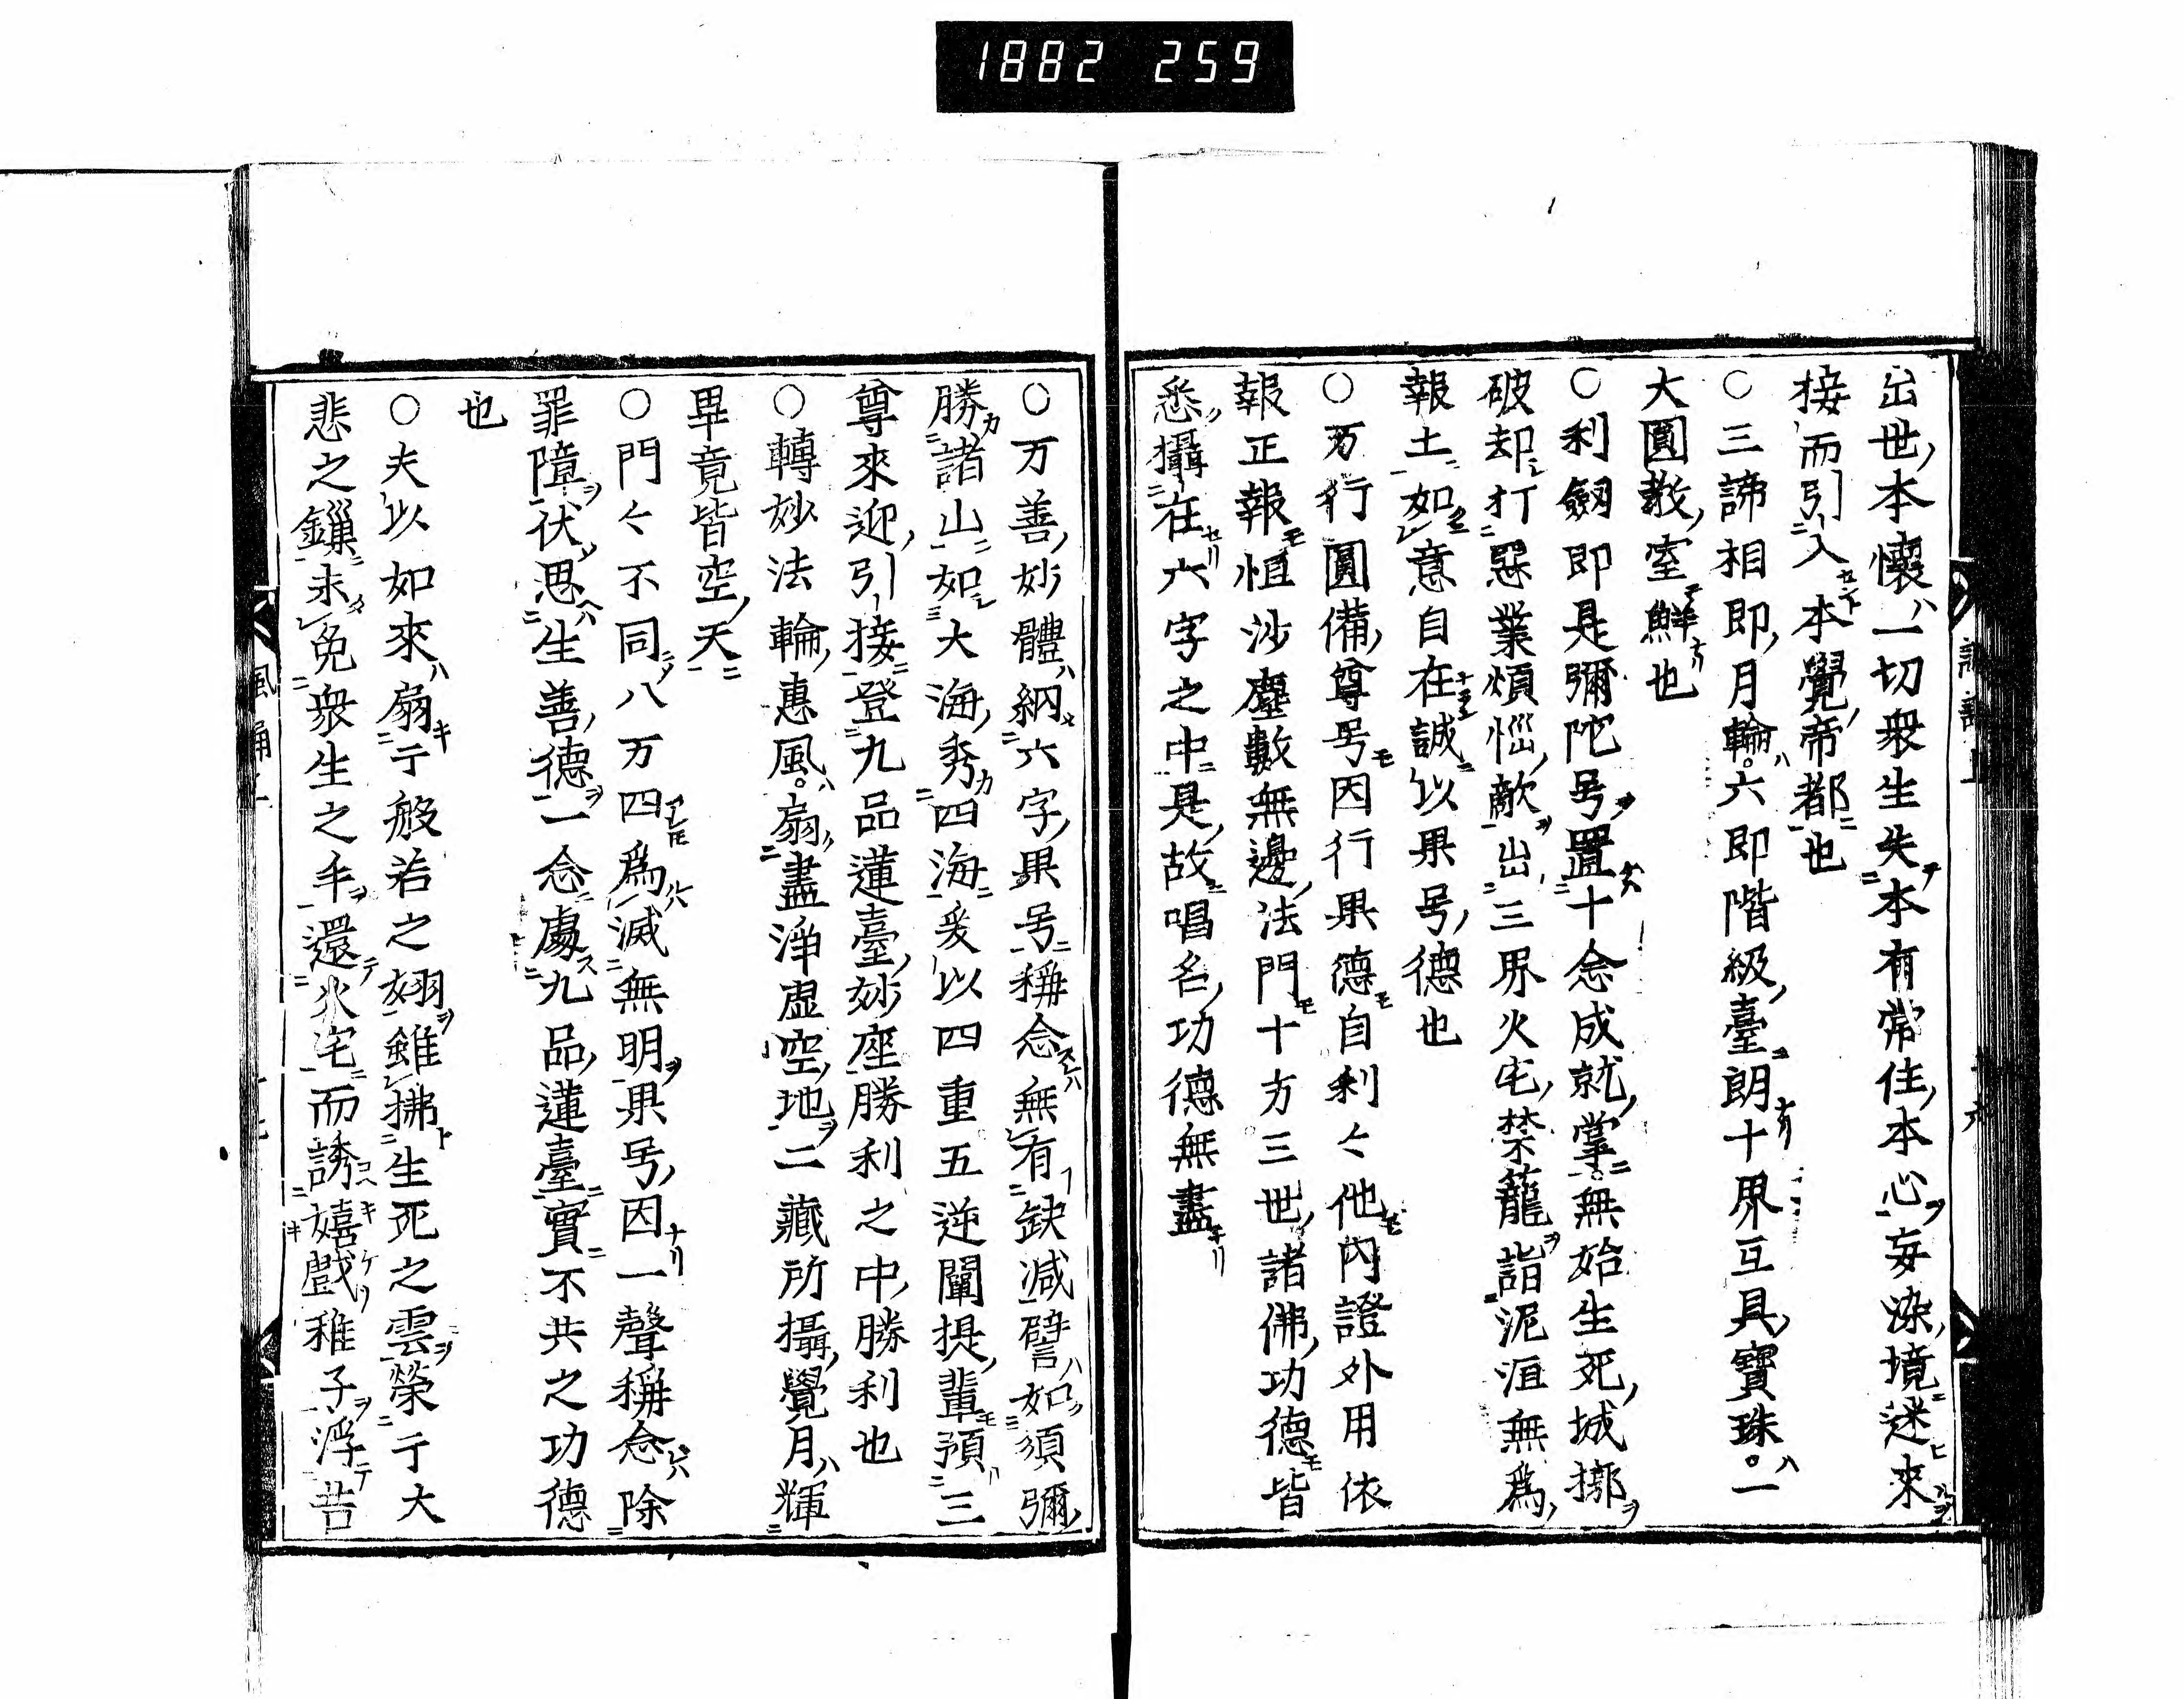 1882 259
出世本懷一切衆生失本有常住本心妄染境迷來
接而引入本覺帝都也
○三諦相即月輪六即階級臺朗十界互具寶珠一
大圓教室鮮也
○利劔即是彌陀号置十念成就掌無始生死城挪
破却打惡業煩惱敵出三界火宅禁籠詣泥洹無爲
報土如意自在誠以果号德也
○万行圓備尊号因行果德自利々他内證外用依
報正報恒沙塵數無邊法門十方三世諸佛功德皆
悉攝在六字之中是故唱名功德無盡
○万善妙體納六字果号稱念無有缺減譬如須彌
勝諸山如大海秀四海爰以四重五逆闡提輩預三
尊來迎引接登九品蓮臺妙座勝利之中勝利也
○轉妙法輪惠風扇盡淨虚空地二藏所攝覺月輝
畢竟皆空天
○門々不同八万四爲滅無明果号因一聲稱念除
罪障伏思生善德一念處九品蓮臺實不共之功德
也
○夫以如來扇于般若之翅雖拂生死之雲榮于大
悲之鏁未免衆生之手還火宅而誘嬉戲稚子浮苦